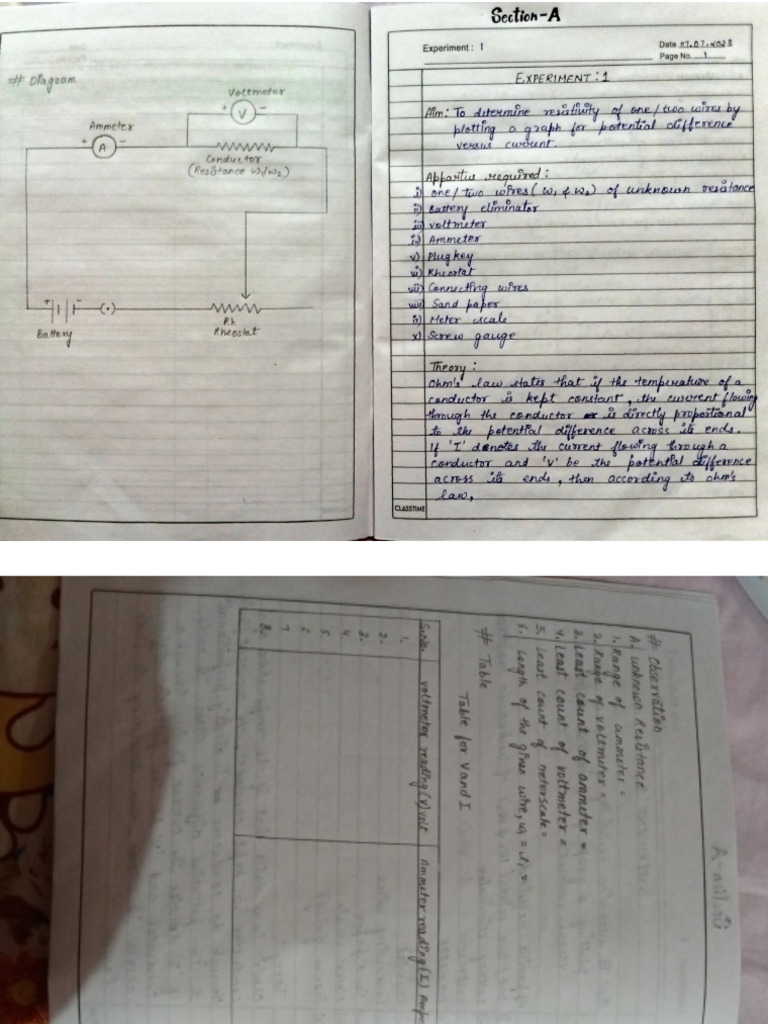 # Diagram
Voltmeter
+ V -
Ammeter
+ A -
Conductor
(Resistance W1/W2)
+ -
Battery
Rh
Rheostat
Section-A
Experiment : 1
Date 07.07.2023
Page No. 1
EXPERIMENT : 1
Aim: To determine resistivity of one/two wires by
plotting a graph for potential difference
versus current.
Appartus required :
i) one/two wires (W1 & W2) of unknown resistance
ii) Battery eliminator
iii) Voltmeter
iv) Ammeter
v) Plug key
vi) Rheostat
vii) Connecting wires
viii) Sand paper
ix) Meter scale
x) Screw gauge
Theory :
Ohm's law states that if the temperature of a
conductor is kept constant, the current flowing
through the conductor is directly proportional
to the potential difference across its ends.
If 'I' denotes the current flowing through a
conductor and 'V' be the potential difference
across its ends, then according to ohm's
law,
CLASSTIME
# Observation
A. unknown Resistance
1. Range of ammeter =
2. Range of voltmeter =
3. Least count of ammeter =
4. Least count of voltmeter =
5. Least count of meterscale =
6. Length of the given wire, w1 = l1 =
# Table
Table for V and I
S.No. Voltmeter reading (V) volt Ammeter reading (I) Amp
1.
2.
3.
4.
5.
6
7
8.